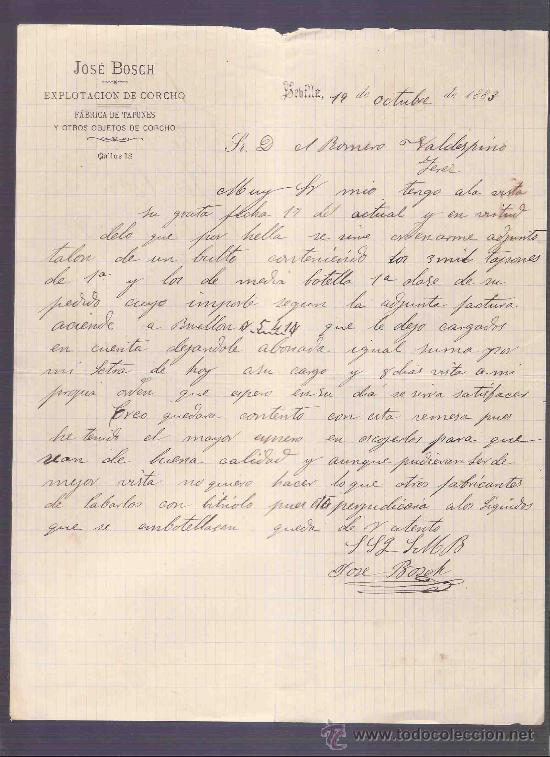 JOSÉ BOSCH
EXPLOTACION DE CORCHO
FÁBRICA DE TAPONES
Y OTROS OBJETOS DE CORCHO
Sevilla, 19 de octubre de 1883
Sr. D A Romero Valdespino
Jerez
Muy Sr mio tengo a la vista
su grata fecha 17 del actual y en virtud
delo que por hella se sirve ordenarme adjunto
talon de un bulto conteniendo los 3 mil tapones
de 1ª y los de media botella 1ª clase de su
pedido cuyo importe segun la adjunta factura
aciende a Rvellon que le dejo cargados
en cuenta dejandole abonada igual suma por
mi letra de hoy a su cargo y 8 dias vista a mi
propia orden que espero en su dia se sirva satisfacer
Creo quedara contento con esta remesa pues
he tenido el mayor esmero en escojerlos para que
sean de buena calidad y aunque pudieran ser de
mejor vista no quiero hacer lo que otros fabricantes
de labarlos con bitriolo pues perjudicara a los liquidos
que se embotellasen queda de V atento
S S Q S M B
Jose Bosch
todocoleccion
© www.todocoleccion.net